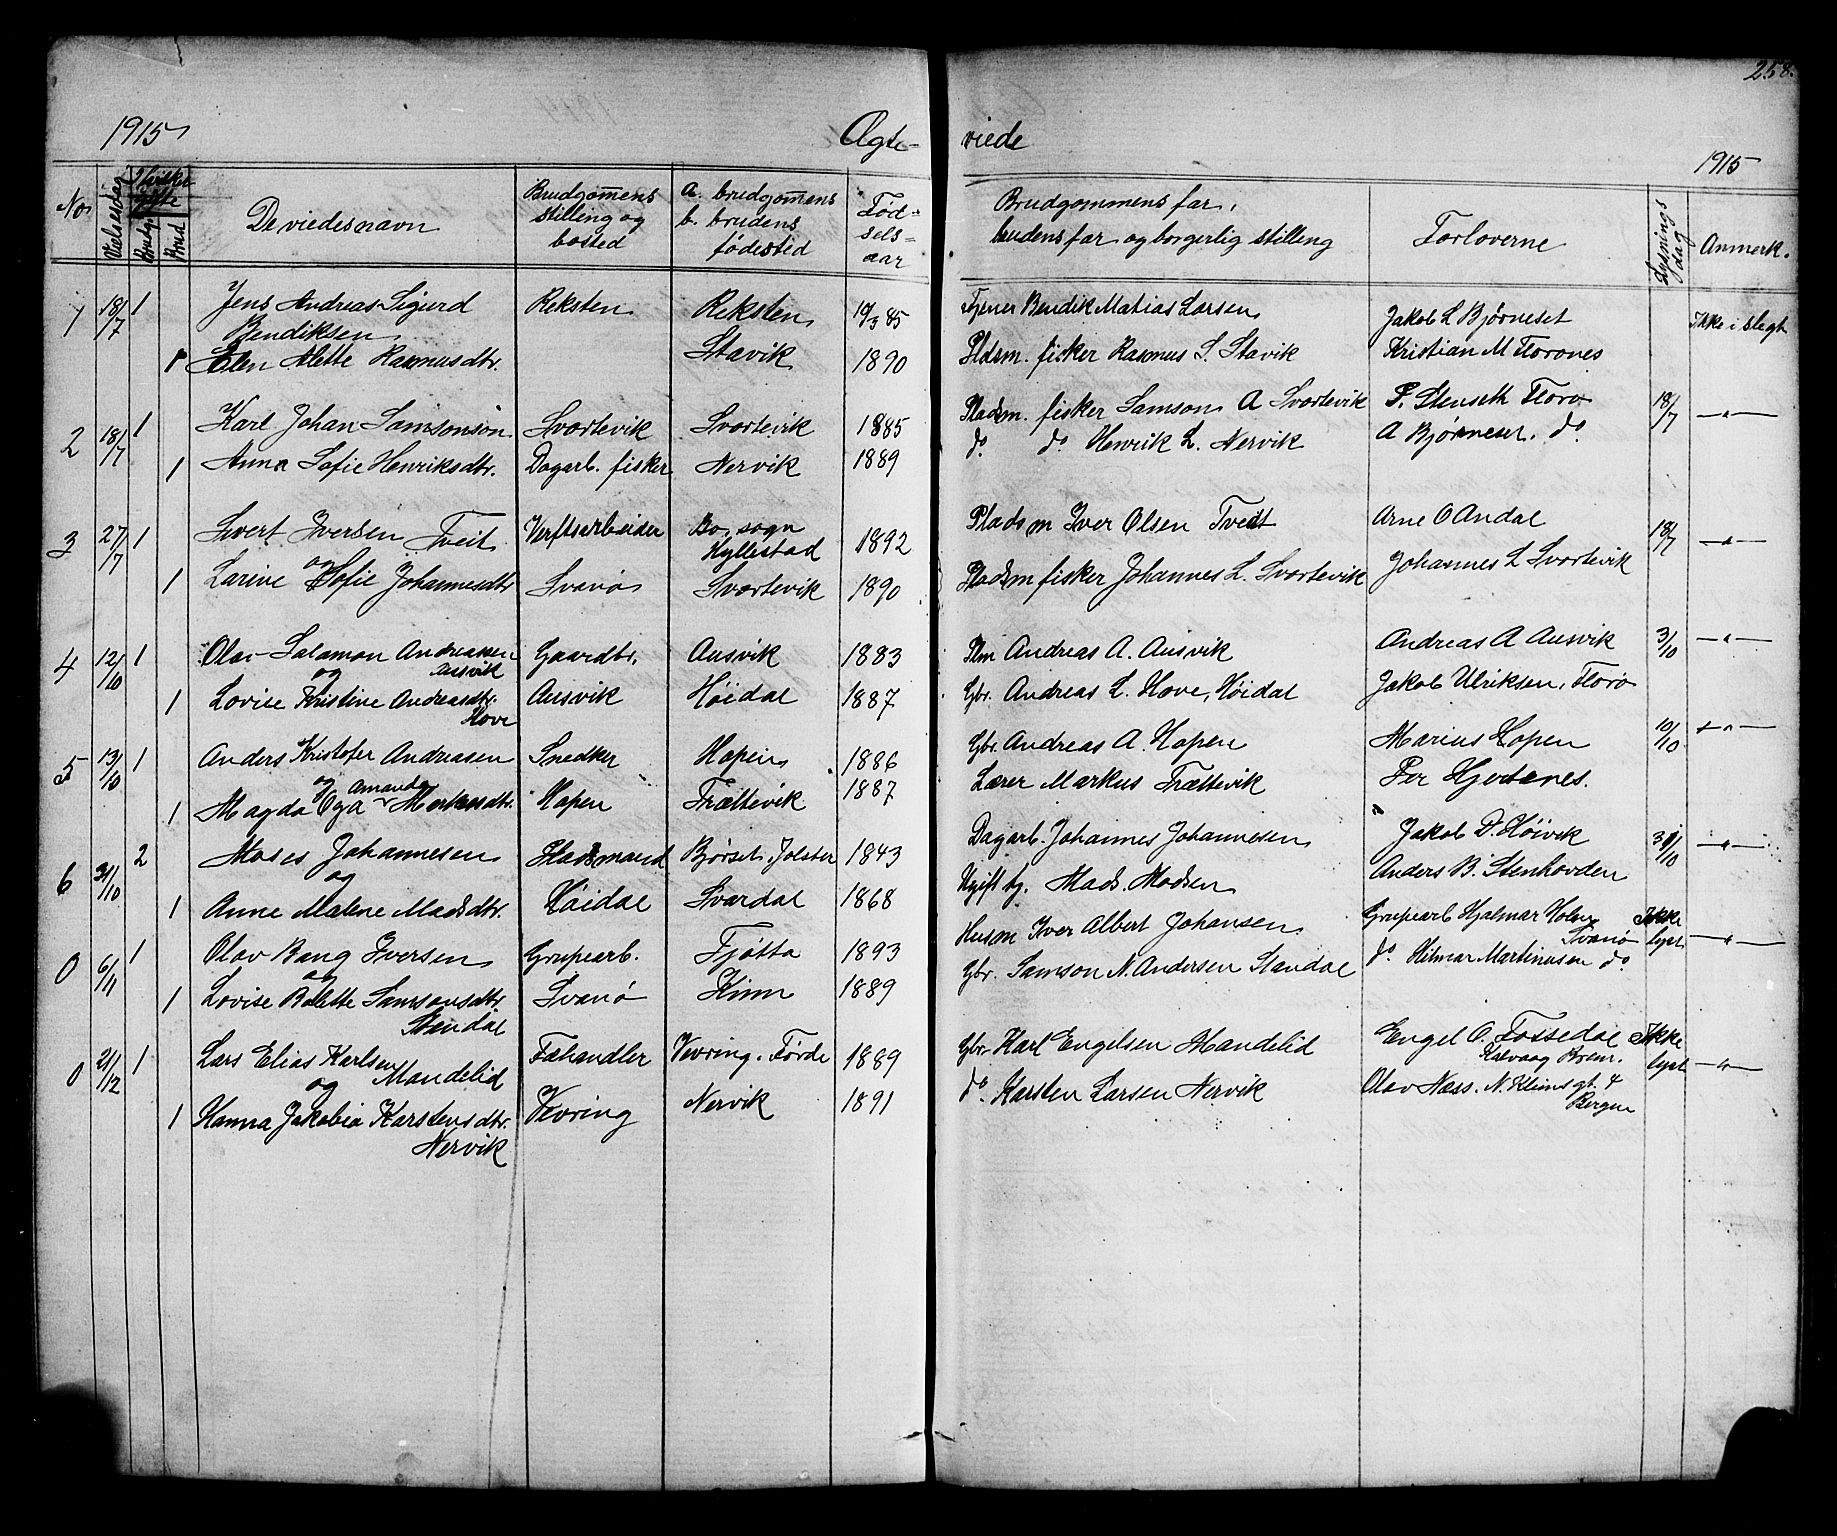 258.
1915
Ægte-
viede
1915
No
Vielsesdag
Hvilket gifte
Brudg.
Brud
De viedes navn
Brudgommens stilling og bosted
a. brudgommens
b. brudens
fødested
Fød-
sels-
aar
Brudgommens far,
brudens far og borgerlig stilling
Forloverne
Lysnings dag
Anmerk.
1 18/7 1 Jens Andreas Sigurd Reksten Reksten 19/3 85 Bendik Matias Larsen Jakob L Bjørneset Ikke i slegt
Bendiksen
1 Elen Alette Rasmusdtr. Stavik 1890 Pldsm. fisker Rasmus S. Stavik Kristian M Florenes
2 18/7 1 Karl Johan Samsonson Svortevik Svortevik 1885 Pladsm. fisker Samson A Svortevik P. Stenseth Florø 18/7 —"—
1 Anna Sofie Henriksdtr. Dagarb. fisker Nervik 1889 do do Henrik L. Nervik A Bjørneset. do
3 27/7 1 Sivert Iversen Tveit Verftsarbeider Bo, sogn Hyllestad 1892 Pladsm Iver Olsen Tveit Arne O Andal 18/7 —"—
og
1 Larine Sofie Johannesdtr Svanø Svortevik 1890 Pladsm fisker Johannes L. Svortevik Johannes L Svortevik
4 12/10 1 Olai Salamon Andreassen Gaardbr. Ausvik 1883 Plm Andreas A. Ausvik Andreas A Ausvik 3/10 —"—
og Ausvik
1 Lovise Kristine Andreasdtr. Ausvik Høidal 1887 Gbr. Andreas L. Hove, Høidal Jakob Ulriksen, Florø
Hove
5 13/10 1 Anders Kristofer Andreasen Snedker Hopen 1886 Gbr. Andreas A. Hopen Marius Hopen 10/10 —"—
og Amanda
1 Magda Oga Markusdtr. Hopen Trættevik 1887 Lærer Markus Trættevik Per Hjertenes.
6 31/10 2 Moses Johannesen Pladsmand Bjørset, Jølster 1843 Dagarb. Johannes Johannesen Jakob D. Høivik 31/10 —"—
og
1 Anne Malene Madsdtr. Høidal Svardal 1868 Ugift bg. Mads Madsen Anders B. Stenhovden
0 6/11 1 Olav Bang Iversen Grubearb. Tjøtta 1893 Husm Iver Albert Johansen Grubearb Hjalmar Holm Svanø Ikke lyst —"—
og
1 Lovise Bolette Samsonsdtr Svanø Kinn 1889 Gbr. Samson N. Andersen Standal do Hilmar Martinusen do
Standal
0 21/12 1 Lars Elias Karlsen Fæhandler Vevring. Førde 1889 Gbr Karl Engelsen Mandelid Engel O. Fossedal Ikke lyst —"—
og Mandelid Kalvaag Brem.
1 Hanna Jakobia Karstensdtr. Vevring Nervik 1891 do. Karsten Larsen Nervik Olav Næss. N. Klimsgt. 4
Nervik Bergen